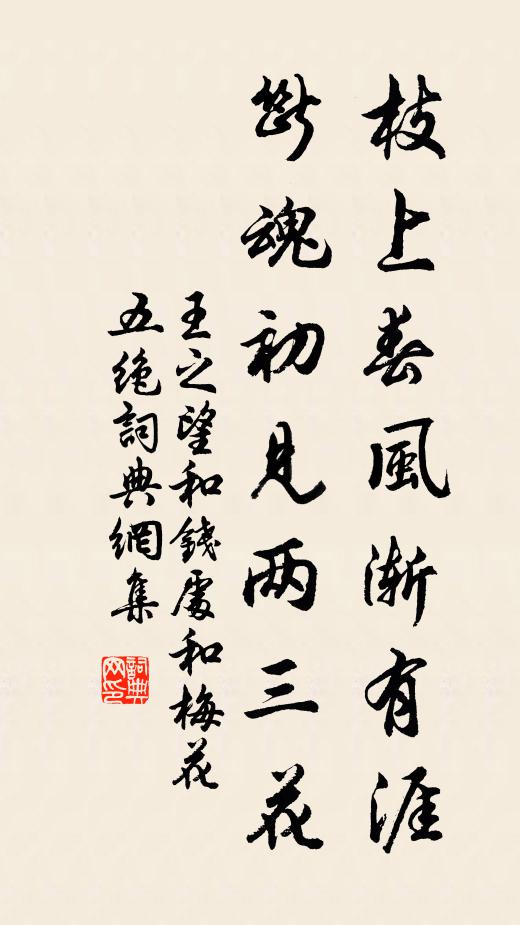 枝上春風漸有涯
斷魂初見两三花
王之望和錢處和梅花
五絶詞典網集
詞典网印